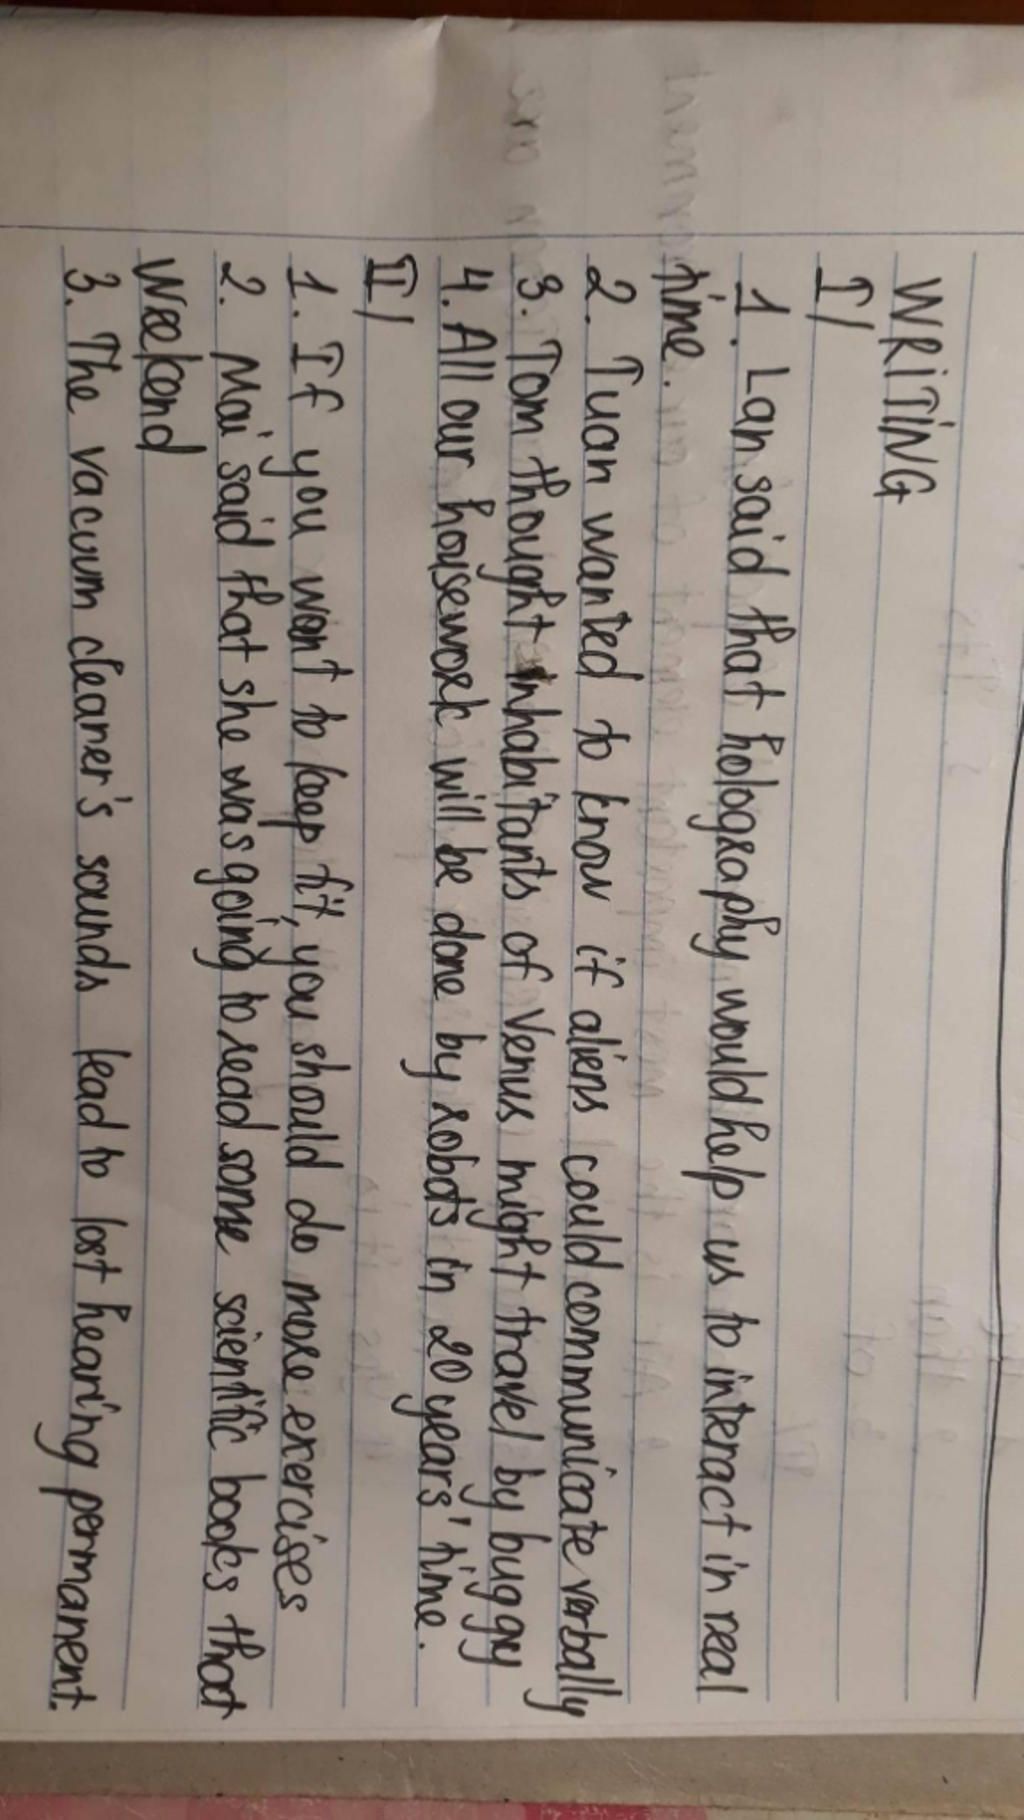 WRITING
I/
1. Lan said that holography would help us to interact in real
time.
2. Tuan wanted to know if aliens could communicate verbally
3. Tom thought inhabitants of Venus might travel by buggy
4. All our housework will be done by robots in 20 years' time.
II/
1. If you want to keep fit, you should do more exercises
2. Mai said that she was going to read some scientific books that
weekend
3. The vacuum cleaner's sounds lead to lost hearing permanent.